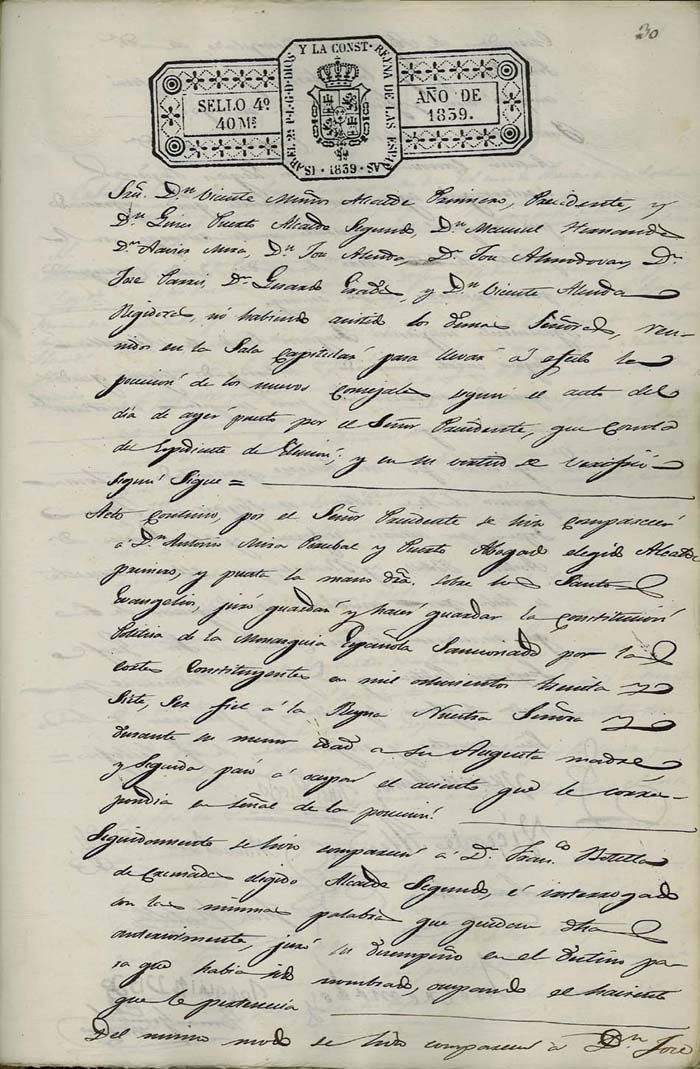 30
ISABEL 2ª P. L. G. D. DIOS Y LA CONST. REYNA DE LAS ESPAÑAS
SELLO 4º
40 Ms
AÑO DE
1839.
1839
Sres. Dn Vicente Miñón Alcalde Primero, Presidente, y
Dn Gines Puerto Alcalde Segundo, Dn Manuel Hernande
Dn Xavier Mira, Dn José Aienda, Dn José Almodovar, Dn
José Parres, Dn Gerardo, y Dn Vicente Aienda
Regidores, no habiendo asistido los demas Señores, reu-
nidos en la Sala Capitular para llevar á efecto la
posesion de los nuevos Consejales segun el auto del
dia de ayer puesto por el Señor Presidente, que consta
de Expediente de Eleccion; y en su virtud se verificó
segun Sigue =
Acto Continuo, por el Señor Presidente se hizo comparecer
á Dn Antonio Mira Percebal y Puerto Abogado elegido Alcalde
primero, y puesta la mano dra. sobre los Santos
Evangelios, juró guardar y hacer guardar la Constitucion
Politica de la Monarquia Española Sancionada por las
cortes Constituyentes en mil ochocientos treinta y
siete, ser fiel á la Reyna Nuestra Señora y
durante su menor edad a su Augusta madre
y seguida pasó á ocupar el asiento que le corres-
pondia en señal de la posesion.
Seguidamente se hizo comparecer á Dn Franco Botella
de elegido Alcalde Segundo, é interrogado
con las mismas palabras que quedan dhas
anteriormente, juró su desempeño en el Destino pa-
ra que habia sido nombrado, ocupando el haciento
que le pertenecia
Del mismo modo se hizo comparecer á Dn José